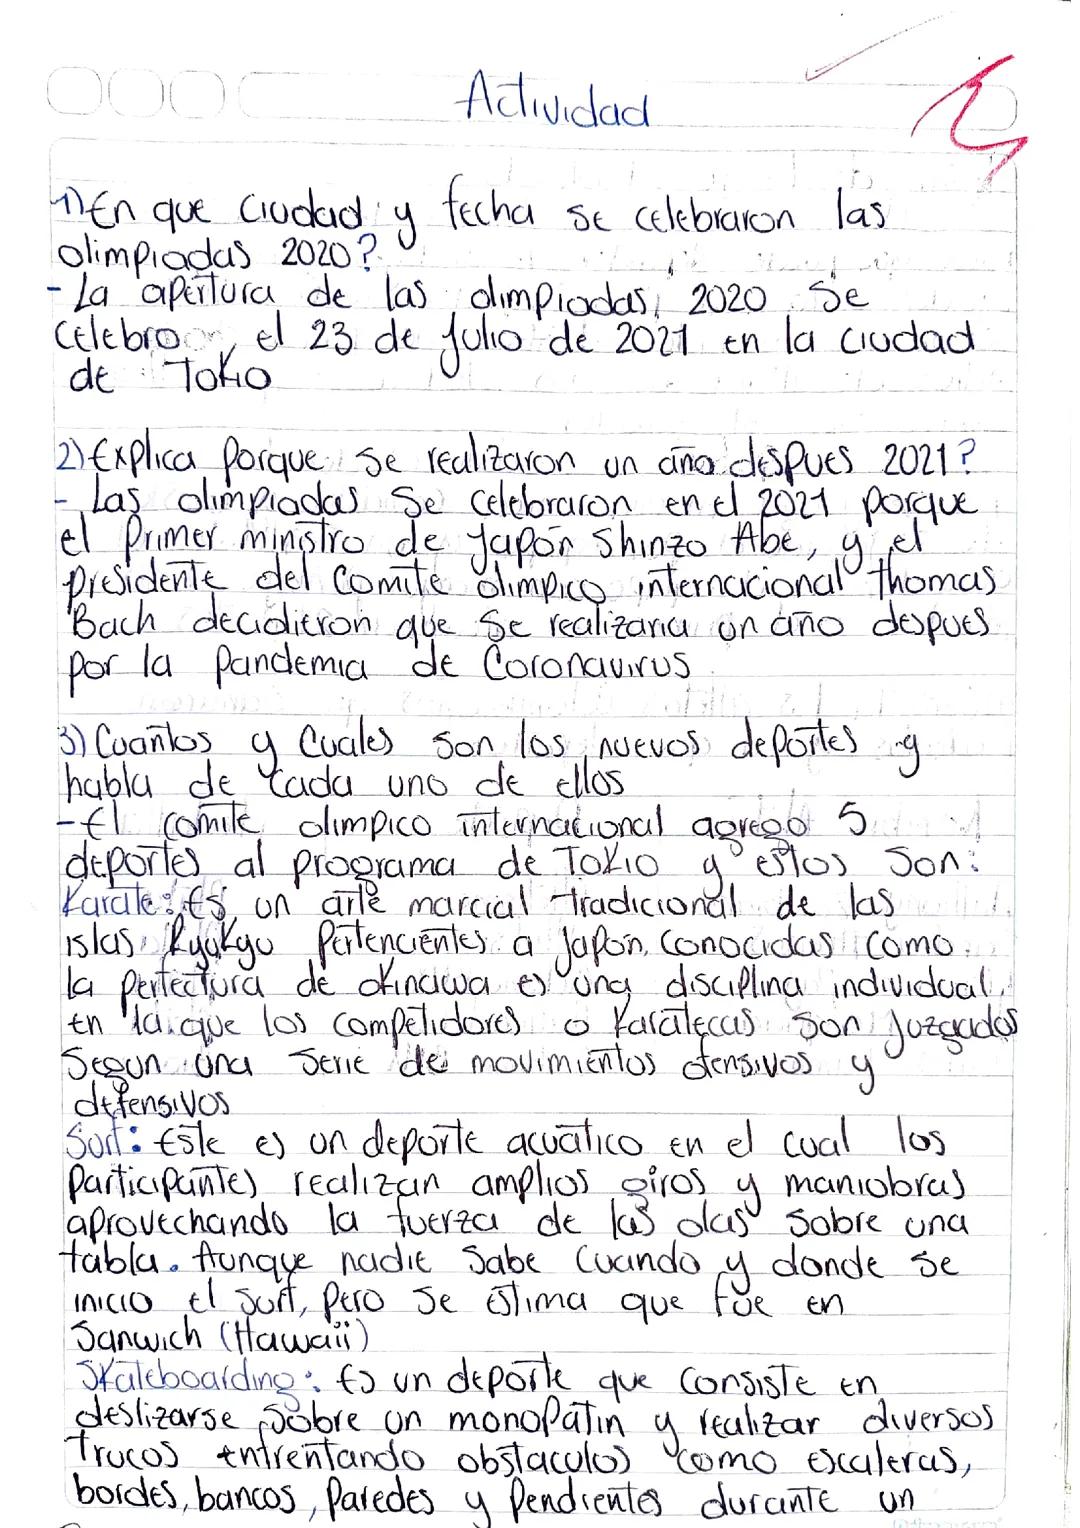 Actividad
1) En que ciudad y fecha se celebraron las
olimpiadas 2020?
- La apertura de las olimpiadas 2020 se
celebro el 23 de Julio de 2021 en la ciudad
de Tokio
2) Explica porque se realizaron un año despues 2021?
- Las olimpiadas se celebraron en el 2021 porque
el primer ministro de Japón Shinzo Abe, y el
presidente del comite olimpico internacional thomas
Bach decidieron que se realizaria un año despues
por la pandemia de Coronavirus
3) Cuantos y Cuales son los nuevos deportes y
habla de cada uno de ellos
- El comite olimpico internacional agrego 5
deportes al programa de Tokio y estos son:
Karate: Es un arte marcial tradicional de las
islas Ryukyu Pertencientes a Japón, conocidas como
la perfectura de okinawa es una disciplina individual
en la que los competidores o Karatecas son Juzgados
segun una serie de movimientos ofensivos y
defensivos
Surf: Este es un deporte acuatico en el cual los
participantes realizan amplios giros y maniobras
aprovechando la fuerza de las olas sobre una
tabla. Aunque nadie sabe cuando y donde se
inicio el surf, pero se estima que fue en
Sanwich (Hawaii)
Skateboarding: Es un deporte que consiste en
deslizarse sobre un monopatin y realizar diversos
trucos enfrentando obstaculos como escaleras,
bordes, bancos, Paredes y Pendientes durante un